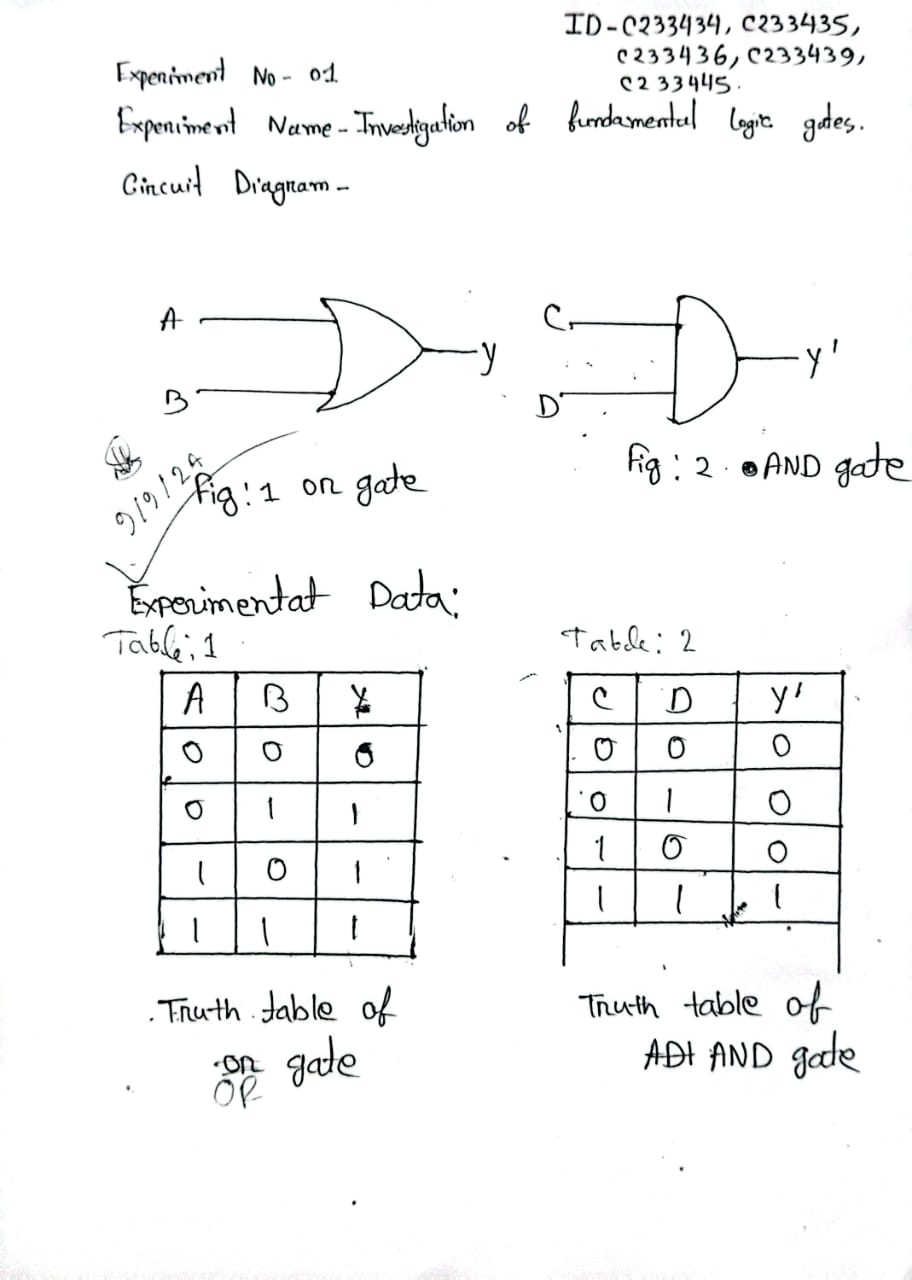 ID-C233434, C233435,
C233436, C233439,
C233445.
Experiment No - 01
Experiment Name - Investigation of fundamental logic gates.
Circuit Diagram -
A
B
Y
C
D
Y'
9/9/24
Fig: 1 or gate
Fig: 2 AND gate
Experimentat Data:
Table; 1
Table: 2
A B Y
0 0 0
0 1 1
1 0 1
1 1 1
C D Y'
0 0 0
0 1 0
1 0 0
1 1 1
Truth table of
or gate
OR
Truth table of
AND gate